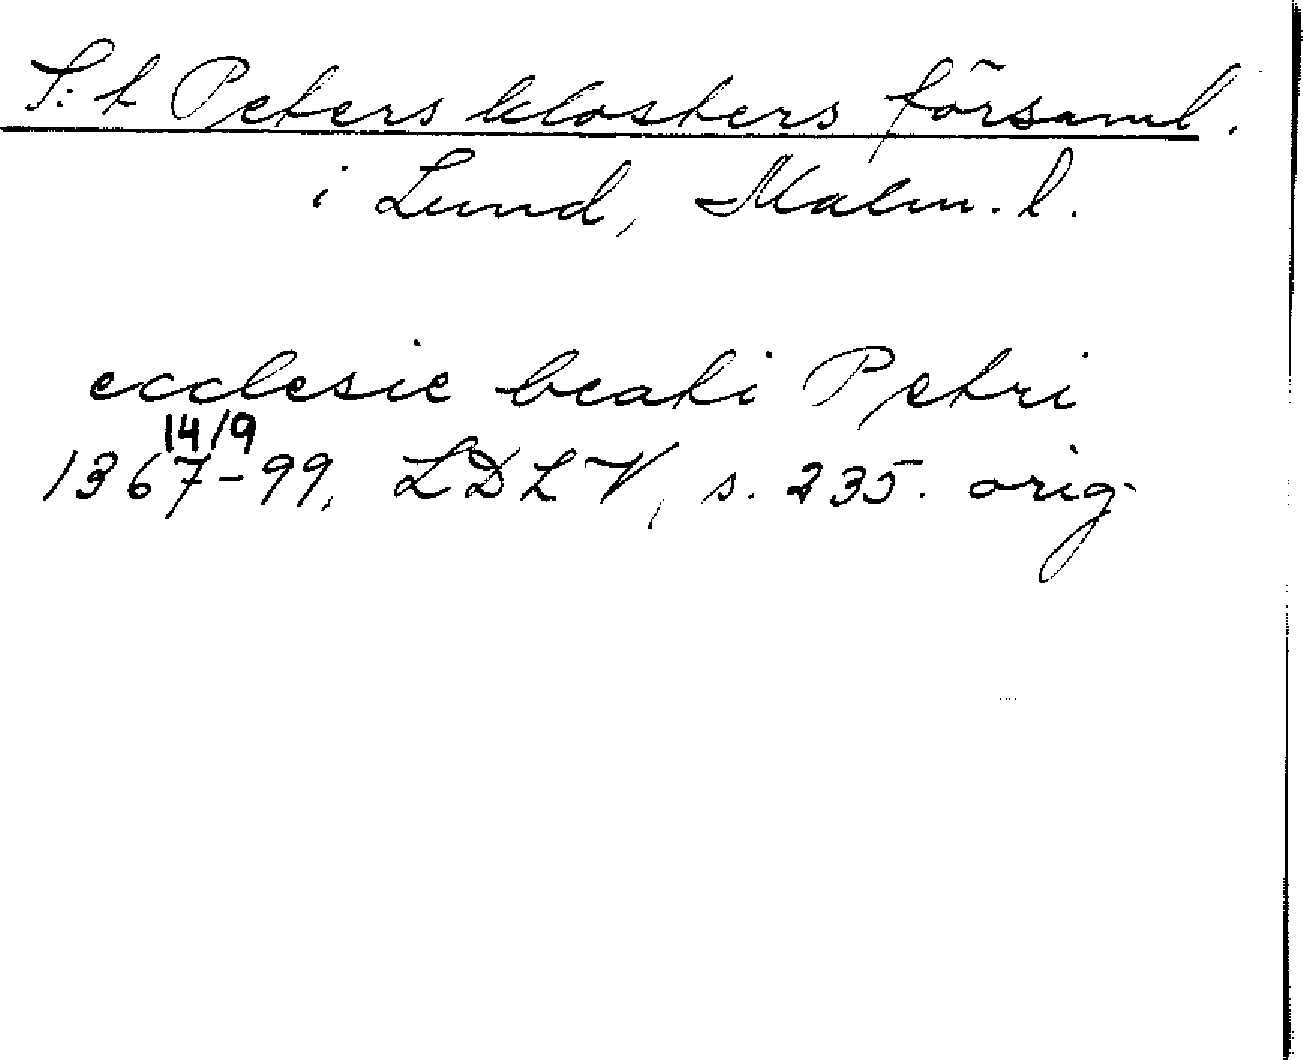 S:t Petersklosters församl.
i Lund, Malm. l.
ecclesie beati Petri
14/9
1367-99, LDLV, s. 235. orig